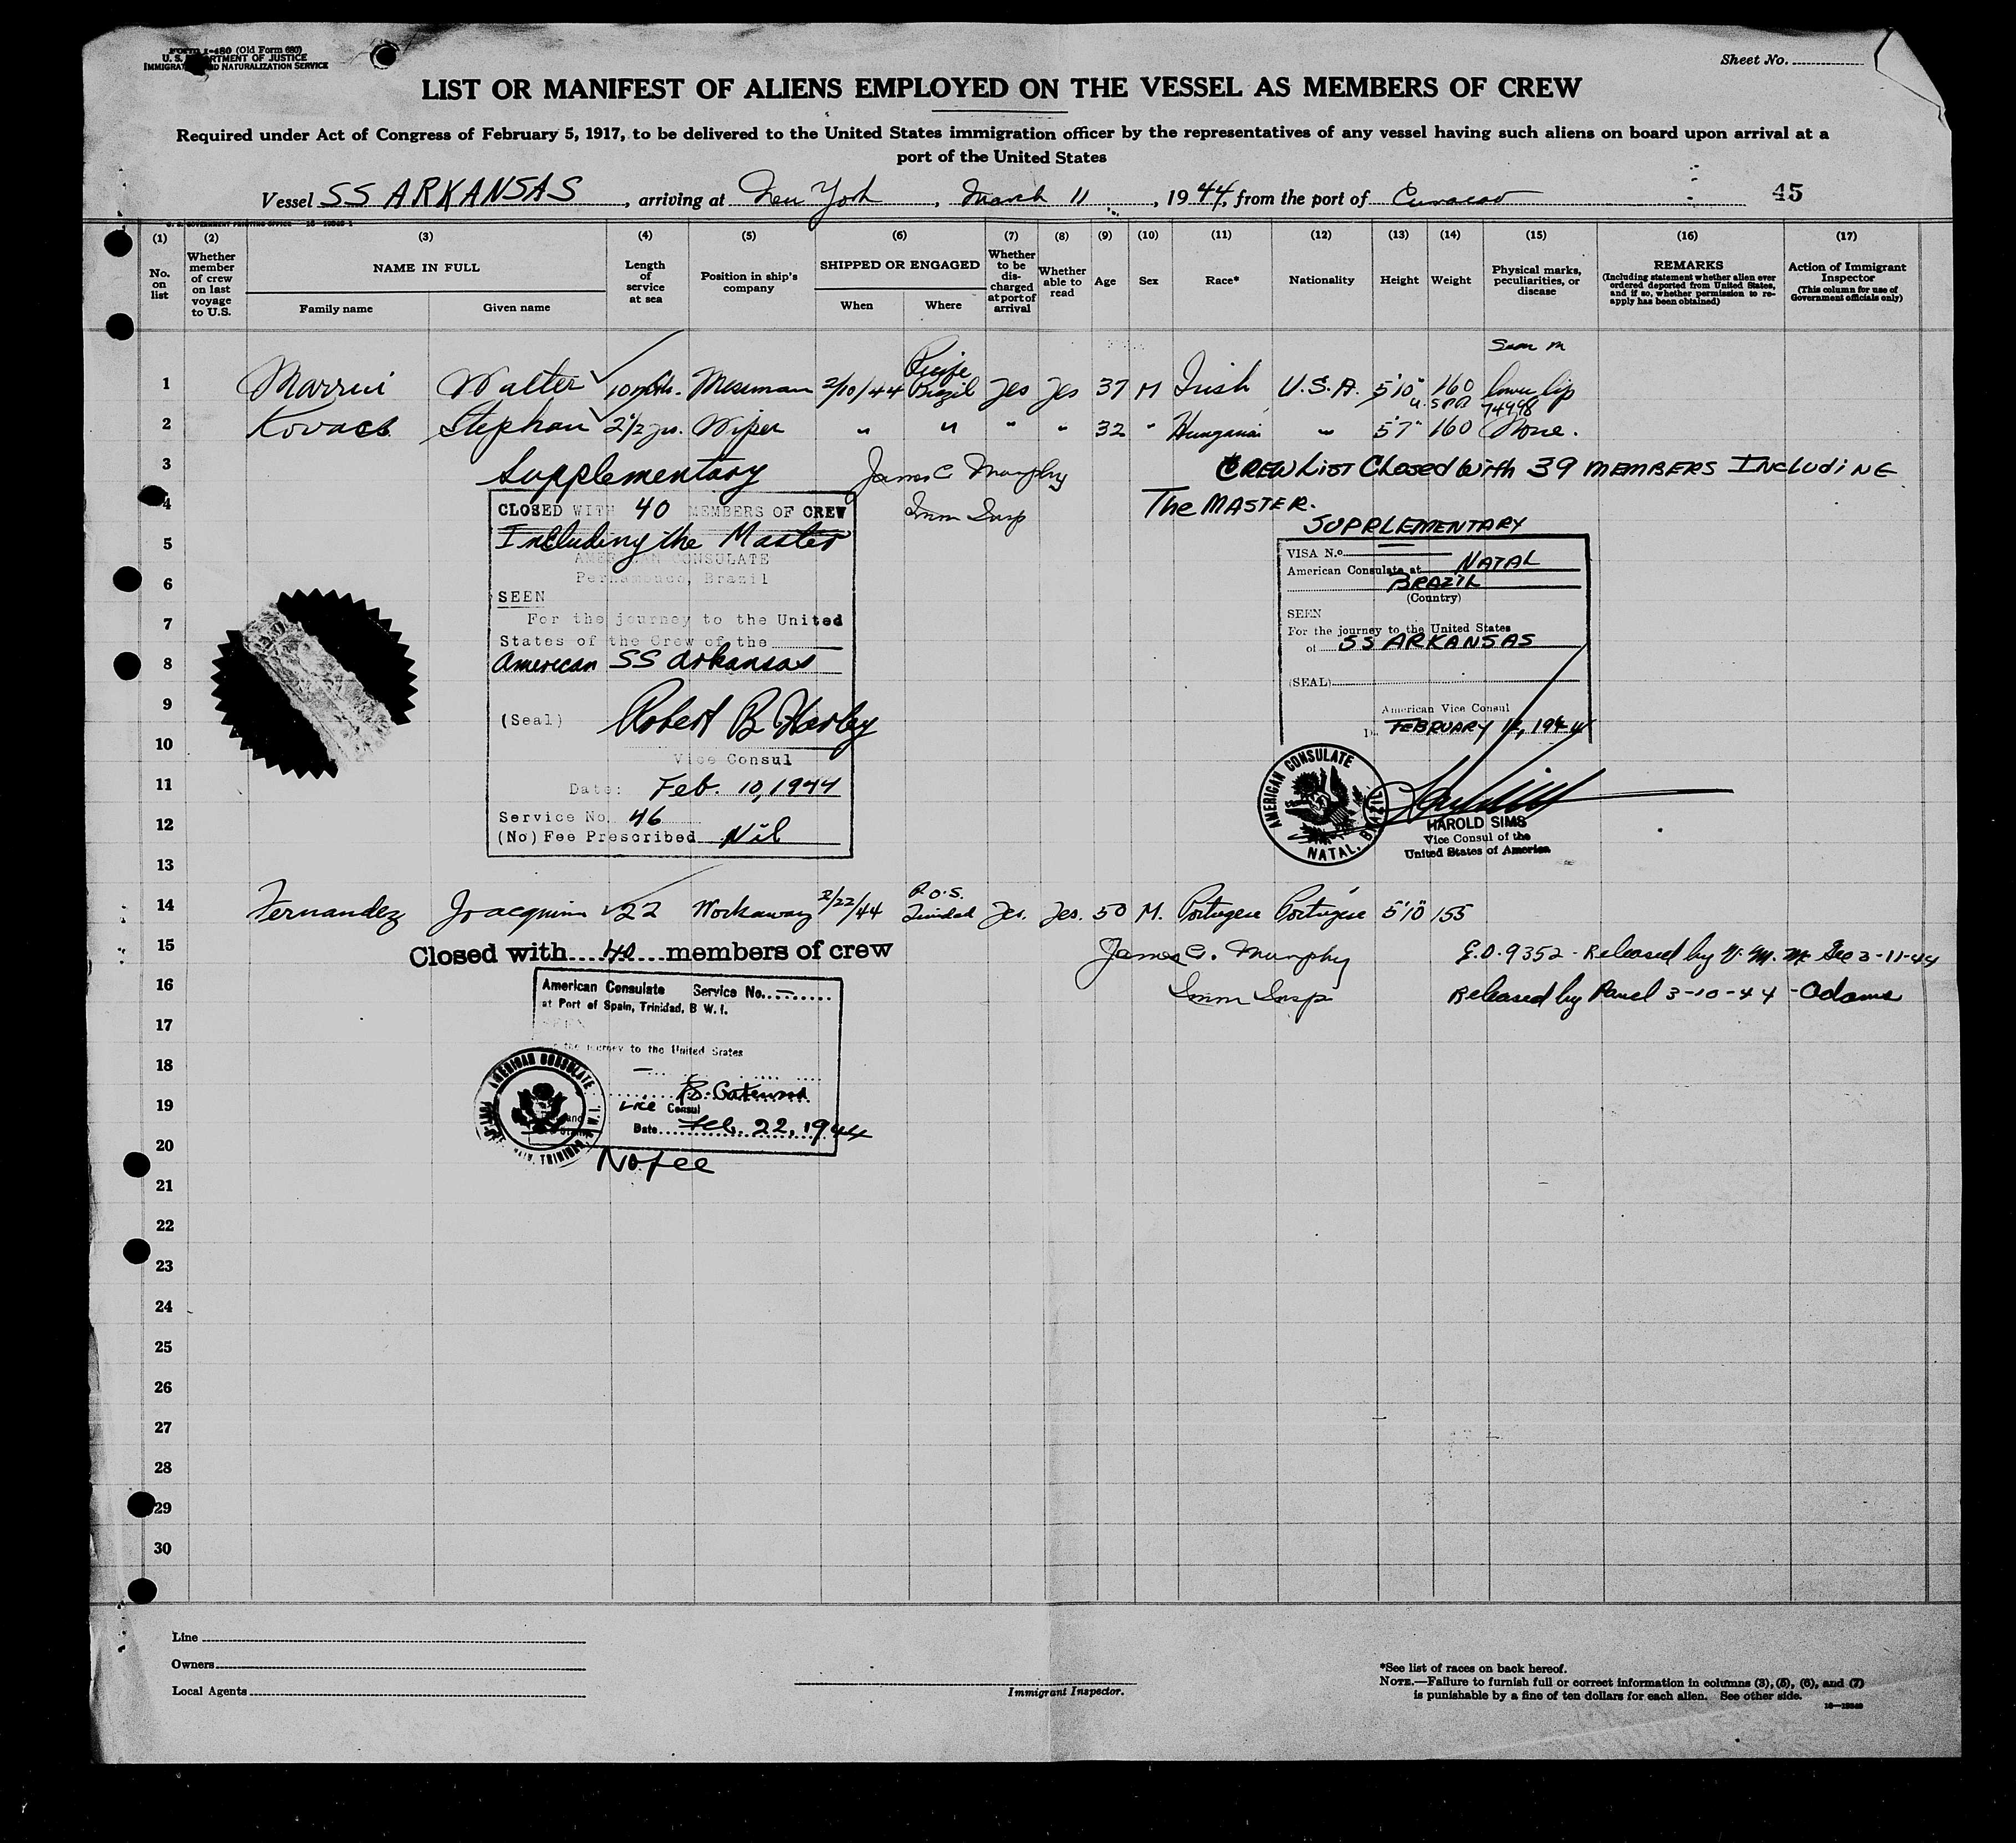 Form I-480 (Old Form 680)
U. S. DEPARTMENT OF JUSTICE
IMMIGRATION AND NATURALIZATION SERVICE
Sheet No.
LIST OR MANIFEST OF ALIENS EMPLOYED ON THE VESSEL AS MEMBERS OF CREW
Required under Act of Congress of February 5, 1917, to be delivered to the United States immigration officer by the representatives of any vessel having such aliens on board upon arrival at a
port of the United States
Vessel SS ARKANSAS, arriving at New York, March 11, 1944, from the port of Curacao 45
U. S. GOVERNMENT PRINTING OFFICE
(1) (2) (3) (4) (5) (6) (7) (8) (9) (10) (11) (12) (13) (14) (15) (16) (17)
No. on list
Whether member of crew on last voyage to U.S.
NAME IN FULL
Family name Given name
Length of service at sea
Position in ship's company
SHIPPED OR ENGAGED
When Where
Whether to be discharged at port of arrival
Whether able to read
Age
Sex
Race*
Nationality
Height
Weight
Physical marks, peculiarities, or disease
REMARKS
(Including statement whether alien ever ordered deported from United States, and if so, whether permission to reapply has been obtained)
Action of Immigrant Inspector
(This column for use of Government officials only)
1 Walter 10 mths. Messman 2/10/44 Recife Brazil Yes Yes 37 M Irish U.S.A. 5'10" 160 lower lip
74998
2 Kovacs Stephan 2 1/2 yrs. Wiper " " " " 32 " Hungarian " 5'7" 160 None.
3 Supplementary James C Murphy CREW LIST Closed With 39 MEMBERS INCLUDING
4 CLOSED WITH 40 MEMBERS OF CREW Imm Insp The MASTER.
5 Including the Master
AMERICAN CONSULATE
Pernambuco, Brazil
6
SEEN
7 For the journey to the United
States of the Crew of the
8 American SS Arkansas
9 (Seal) Robert B
10 Vice Consul
11 Date: Feb. 10, 1944
12 Service No. 46
(No) Fee Prescribed Nil
13
SUPPLEMENTARY
VISA No.
American Consulate at NATAL
BRAZIL
(Country)
SEEN
For the journey to the United States
of SS ARKANSAS
(SEAL)
American Vice Consul
FEBRUARY 1944
AMERICAN CONSULATE
NATAL, BRAZIL
HAROLD SIMS
Vice Consul of the
United States of America
14 Fernandez Joacquim 22 Workaway 2/22/44 P.O.S. Trinidad Yes. Yes. 50 M. Portugese Portugese 5'10" 155
15 Closed with 40 members of crew James C. Murphy E.O. 9352 - Released by 3-11-44
16 Imm Insp Released by Panel 3-10-44 - Adams
American Consulate Service No.
at Port of Spain, Trinidad, B W. I.
SEEN
17
the journey to the United States
18
AMERICAN CONSULATE
TRINIDAD
19
Vice Consul
Date Feb. 22, 1944
20
No fee
21
22
23
24
25
26
27
28
29
30
Line
Owners
Local Agents
Immigrant Inspector.
*See list of races on back hereof.
NOTE.—Failure to furnish full or correct information in columns (3), (5), (6), and (7)
is punishable by a fine of ten dollars for each alien. See other side.